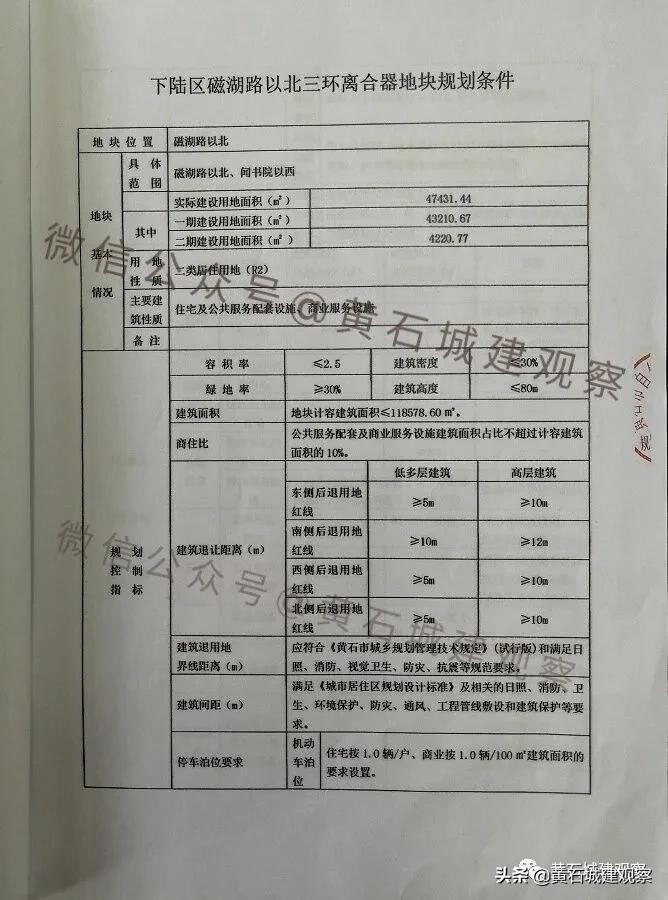 下陆区磁湖路以北三环离合器地块规划条件
地块位置 磁湖路以北
地块
基本
情况
具体
范围
磁湖路以北、闻书院以西
其中
实际建设用地面积（㎡） 47431.44
一期建设用地面积（㎡） 43210.67
二期建设用地面积（㎡） 4220.77
用地
性质
二类居住用地（R2）
主要建
筑性质
住宅及公共服务配套设施、商业服务设施
备注
规划
控制
指标
容积率 ≤2.5 建筑密度 ≤30%
绿地率 ≥30% 建筑高度 ≤80m
建筑面积 地块计容建筑面积≤118578.60㎡。
商住比
公共服务配套及商业服务设施建筑面积占比不超过计容建筑
面积的10%。
建筑退让距离（m）
低多层建筑 高层建筑
东侧后退用地
红线
≥5m ≥10m
南侧后退用地
红线
≥10m ≥12m
西侧后退用地
红线
≥5m ≥10m
北侧后退用地
红线
≥5m ≥10m
建筑退用地
界线距离（m）
应符合《黄石市城乡规划管理技术规定》（试行版）和满足日
照、消防、视觉卫生、防灾、抗震等规范要求。
建筑间距（m）
满足《城市居住区规划设计标准》及相关的日照、消防、卫
生、环境保护、防灾、通风、工程管线敷设和建筑保护等要
求。
停车泊位要求
机动
车泊
位
住宅按1.0辆/户、商业按1.0辆/100㎡建筑面积的
要求设置。
微信公众号@黄石城建观察
微信公众号@黄石城建观察
黄石城建观察
头条@黄石城建观察